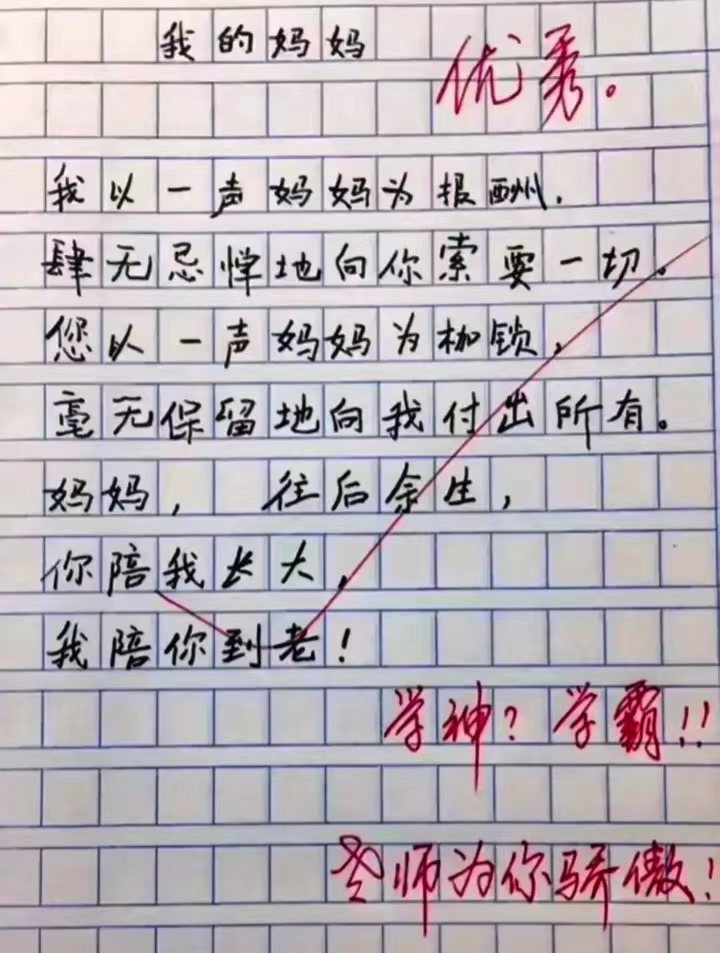 我的妈妈
优秀。
我以一声妈妈为报酬，
肆无忌惮地向你索要一切。
您以一声妈妈为枷锁，
毫无保留地向我付出所有。
妈妈， 往后余生，
你陪我长大，
我陪你到老！
学神？学霸！！
老师为你骄傲！